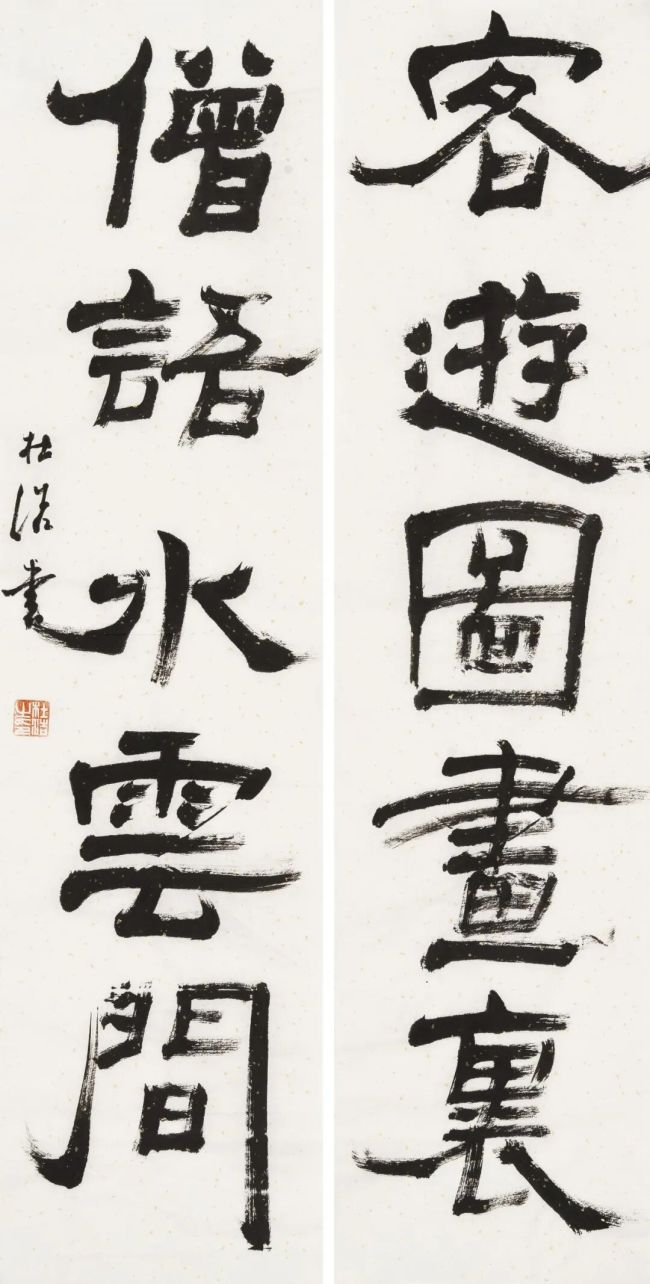 客遊圖畫裏
僧語水雲間
杜書